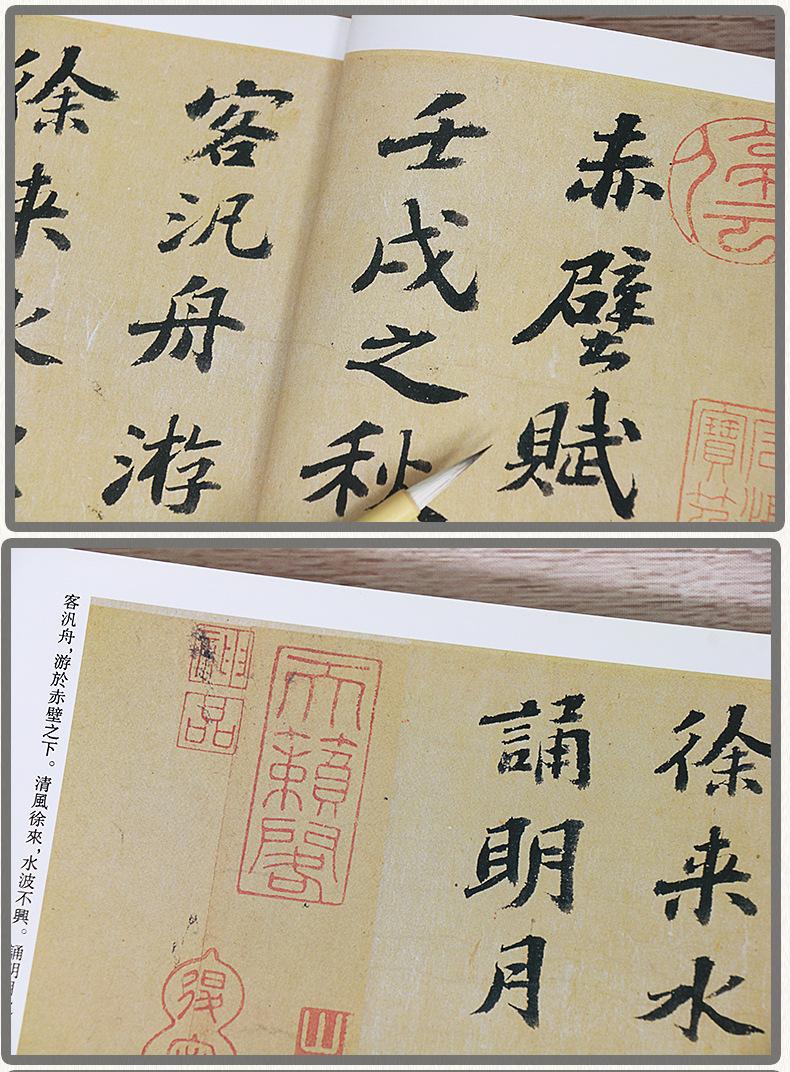 赤壁賦
壬戌之秋
客汎舟游
徐来水
徐来水
誦明月
天籟閣
神品
客汎舟，游於赤壁之下。清風徐來，水波不興。誦明月